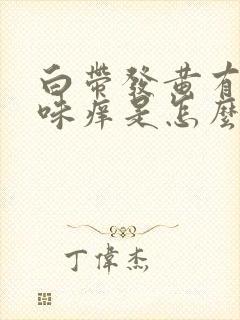 白帶發黄有
味痒是怎麼
丁偉杰